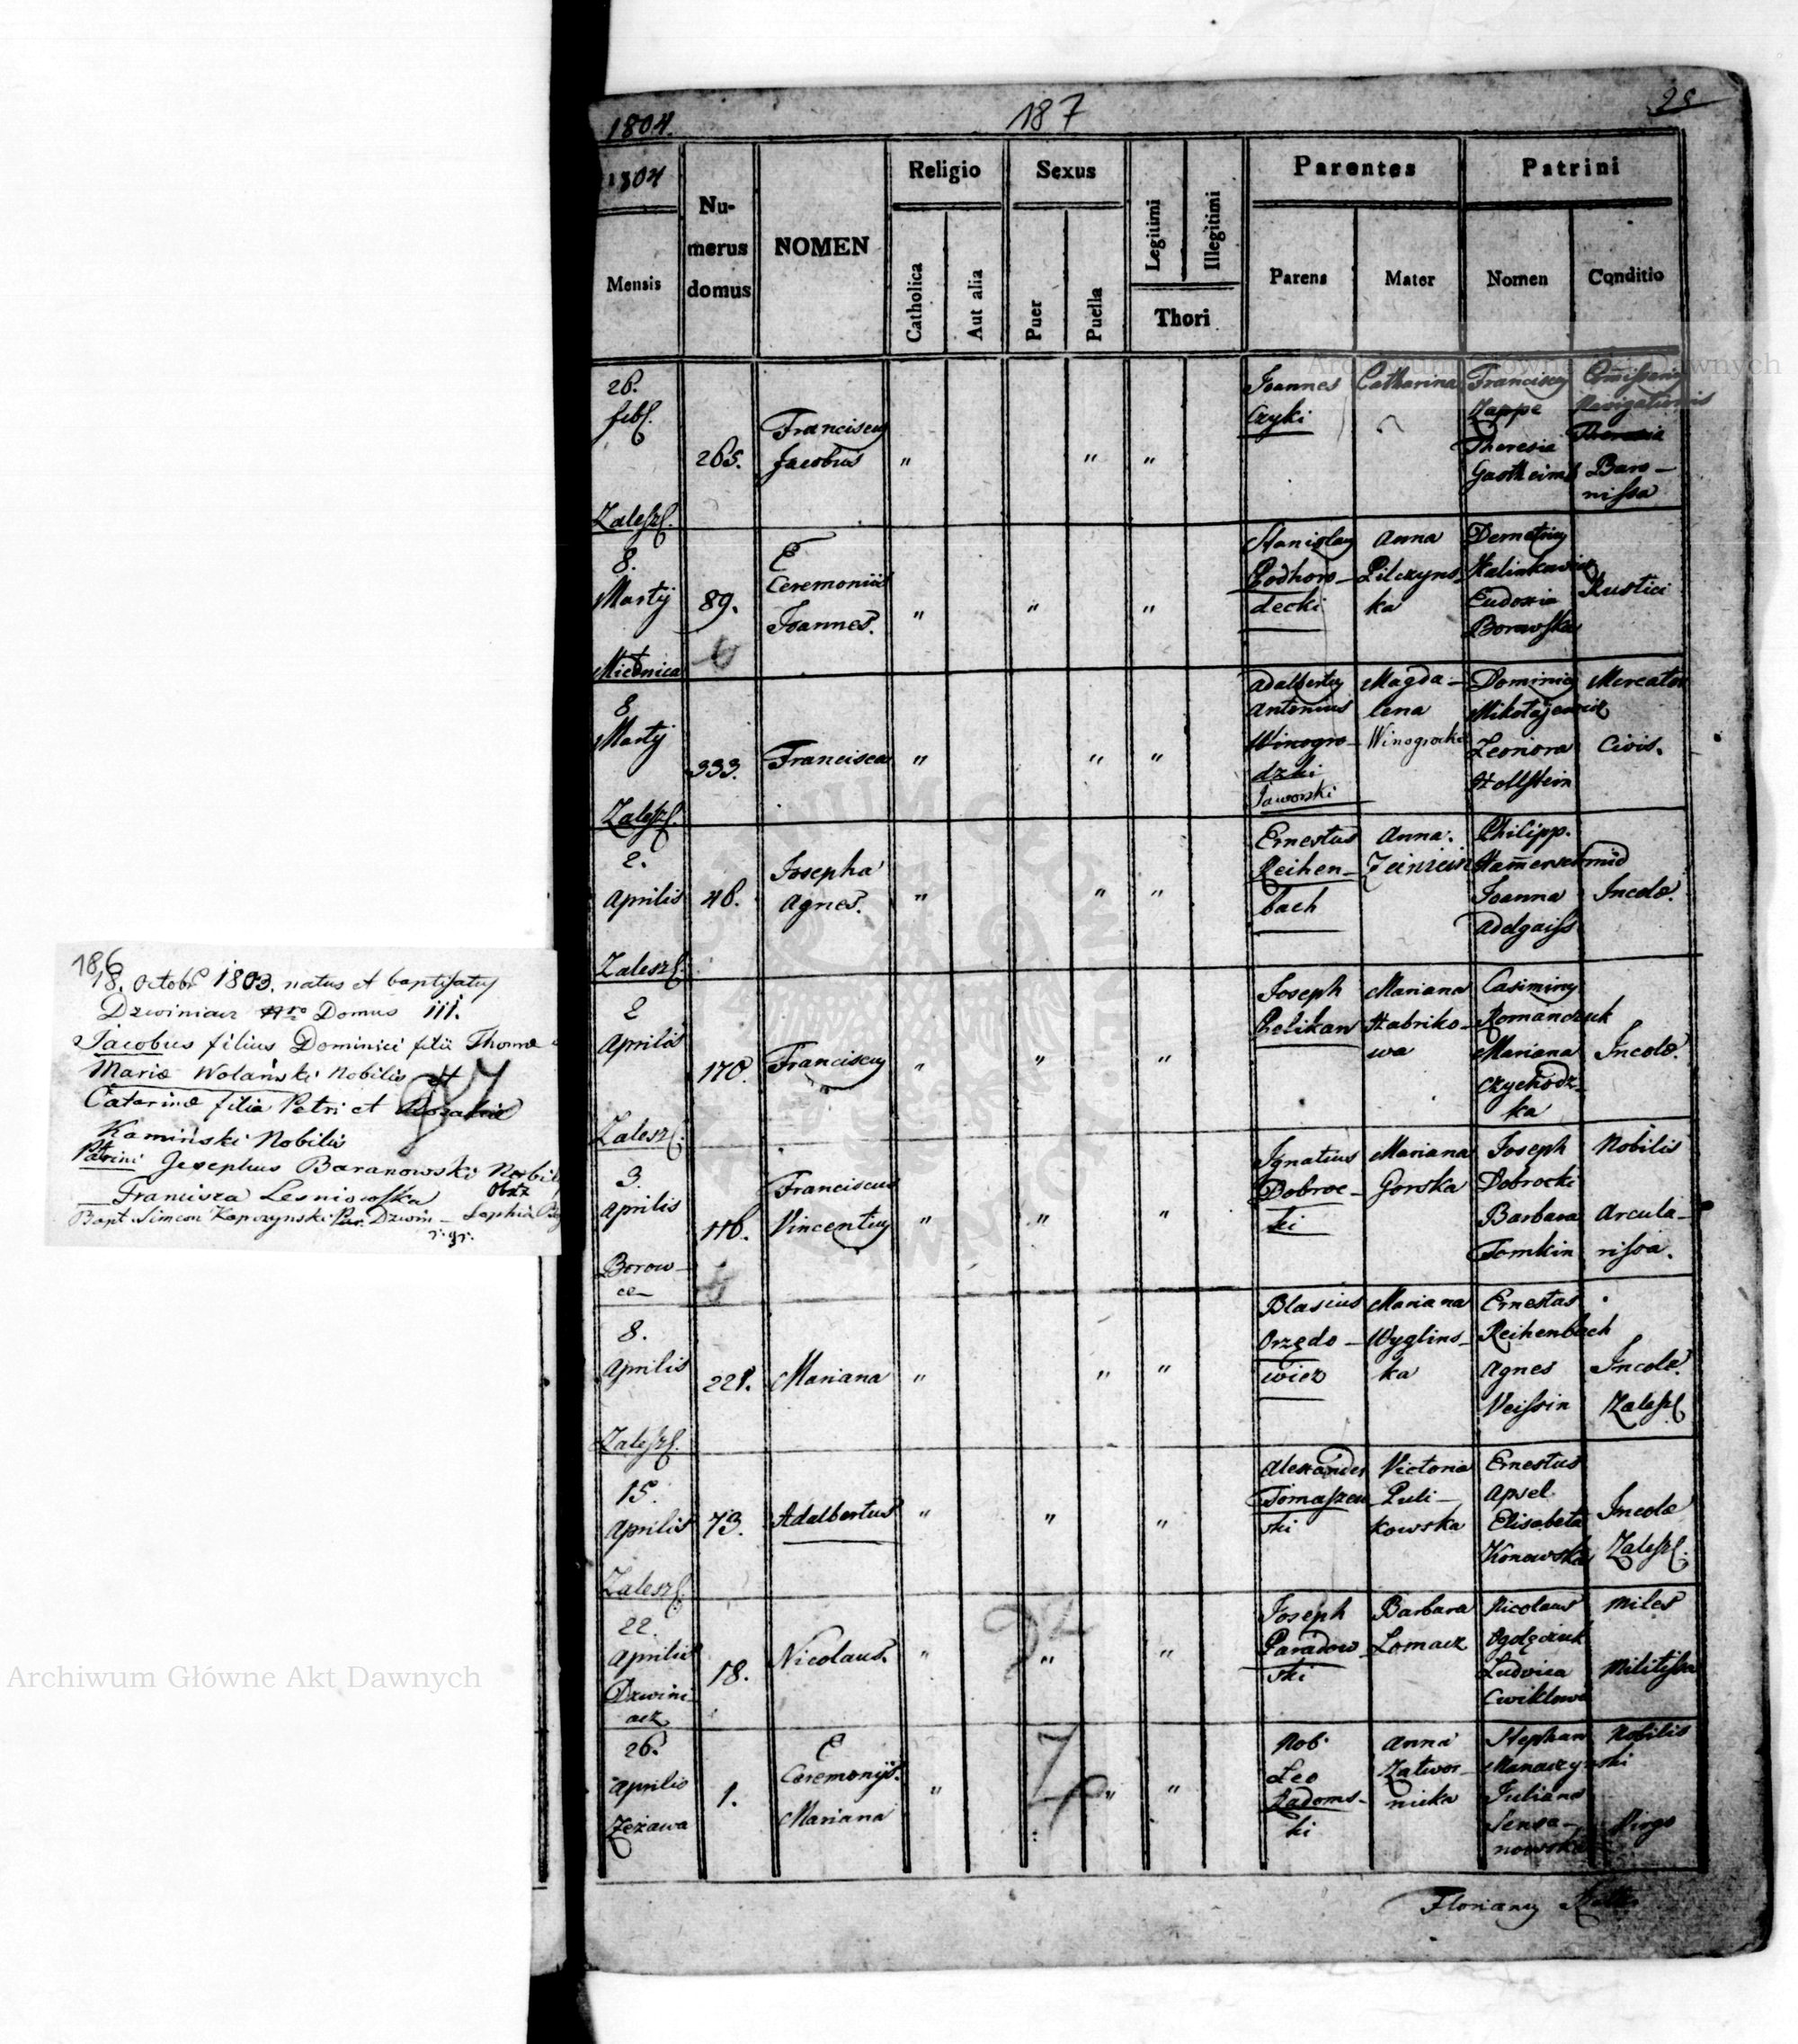 186
18. Octobr 1803. natus et baptisatus
Dzwiniacz Nro Domus 111.
Jacobus filius Dominici filii Thomæ
Mariæ Wolański Nobilis et
Catarinæ filia Petri et Rosaliæ
Kamiński Nobilis
Patrini Josephus Baranowski Nobil
Francisca Lesniowska
Bapt. Simeon Kopczynski Par. Dzwin
Sophia
1804.
187
1804
Mensis
Numerus domus
NOMEN
Religio
Catholica
Aut alia
Sexus
Puer
Puella
Legitimi
Illegitimi
Thori
Parentes
Parens
Mater
Patrini
Nomen
Conditio
26.
febr.
Zaleszcz.
265.
Franciscus
Jacobus
"
"
"
Joannes
Czyki
Catharina
Franciscus
Zappe
Theresia
Navigationis
Theresia
Baro-
nissa
8.
Martij
Miednica
89.
E
Ceremoniis
Joannes.
"
"
"
Stanislaus
Podhoro-
decki
Anna
Pilczyns-
ka
Demetrius
Kalinkawicz
Eudoxia
Borowska
Rustici
8
Martij
Zaleszcz.
333.
Francisca
"
"
"
Adalbertus
Antonius
Winogro-
dzki
Jaworski
Magda-
lena
Winogrocka
Dominicus
Mikołajewicz
Leonora
Hollstein
Mercator
Civis.
2.
Aprilis
Zaleszcz.
46.
Josepha
Agnes.
"
"
"
Ernestus
Reihen-
bach
Anna.
Philipp.
Ham̄erschmid
Joanna
Adelgaiss
Incolæ.
2
Aprilis
Zaleszcz.
170.
Franciscus
"
"
"
Joseph
Pelikan
Mariana
Habriko-
wa
Casimirus
Romanczuk
Mariana
Czychodz-
ka
Incolæ.
3.
Aprilis
Borow-
ce
116.
Franciscus
Vincentius
"
"
"
Ignatius
Dobroc-
ki
Mariana
Gorska
Joseph
Dobrocki
Barbara
Tomkin
Nobilis
Arcula-
rissa.
8.
Aprilis
Zaleszcz.
221.
Mariana
"
"
"
Blasius
Orzędo-
wicz
Mariana
Wyglins-
ka
Ernestus
Reihenbach
Agnes
Veissin
Incolæ
Zaleszcz
15.
Aprilis
Zaleszcz.
73.
Adalbertus
"
"
"
Alexander
Tomaszew
ski
Victoria
Puli-
kowska
Ernestus
Apsel
Elisabeta
Konowska
Incolæ
Zaleszcz.
22.
Aprilis
Dzwini-
acz
18.
Nicolaus.
"
"
"
Joseph
Paradow
ski
Barbara
Lomacz
Nicolaus
Ludvica
Cwiklowa
Miles
Militissa
26.
Aprilis
Zezawa
1.
E
Ceremonijs.
Mariana
"
"
"
Nob.
Leo
Radoms-
ki
Anna
Zatwor-
nicka
Stephan
Manaczynski
Juliana
Sensa-
nowska
Nobilis
Virgo
Florianus
Archiwum Główne Akt Dawnych
Archiwum Główne Akt Dawnych